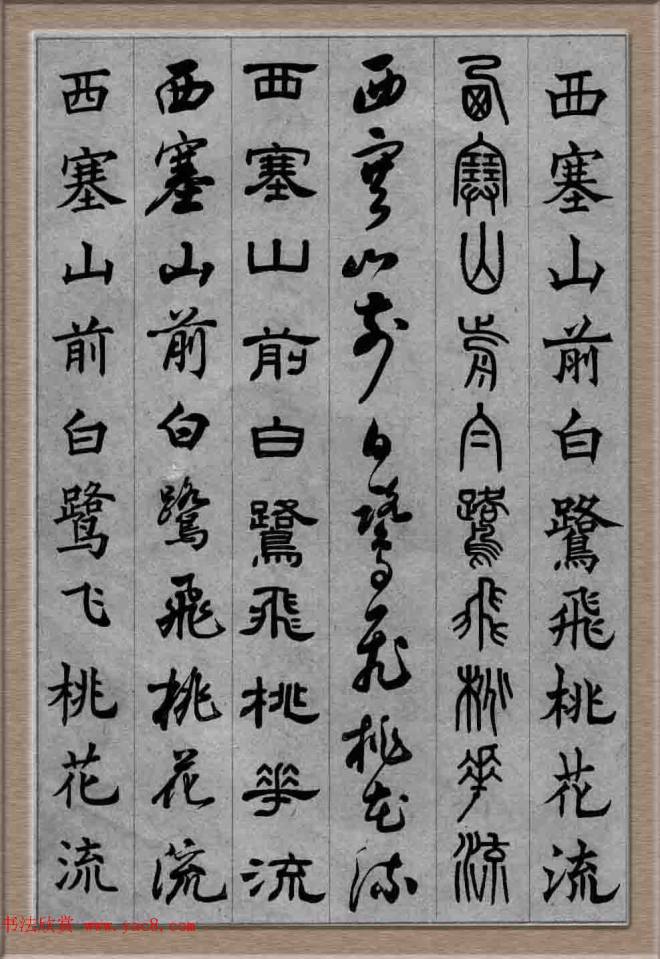 西塞山前白鷺飛桃花流
西塞山前白鷺飛桃華流
西塞山前白鷺飛桃花流
西塞山前白鷺飛桃華流
西塞山前白鷺飛桃花流
西塞山前白鹭飞桃花流
书法欣赏 www.yac8.com